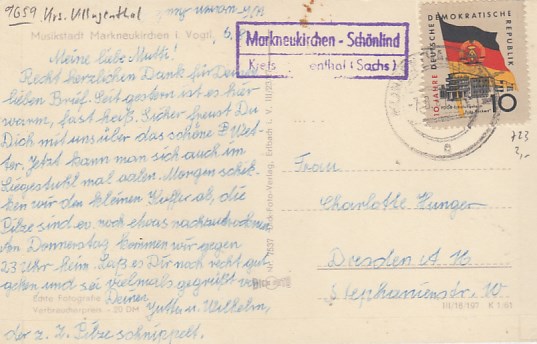 9659 Krs. Klingenthal
Musikstadt Markneukirchen i. Vogtl.
Markneukirchen - Schönlind
Kreis enthal (Sachs.)
10 JAHRE DEUTSCHE DEMOKRATISCHE REPUBLIK
10
723
2,-
Meine liebe Mutti!
Recht herzlichen Dank für Deinen
lieben Brief. Seit gestern ist es hier
warm, fast heiß. Sicher freust Du
Dich mit uns über das schöne Wet-
ter. Jetzt kann man sich auch im
Liegestuhl mal aalen. Morgen schik-
ken wir den kleinen Koffer ab, die
Pilze sind ev. noch etwas nachzutrocknen.
Am Donnerstag kommen wir gegen
23 Uhr heim. Laß es Dir noch recht gut
gehen und sei vielmals gegrüßt von
Deinen
Jutta u. Wilhelm,
der z. Z. Pilze schnippelt.
Echte Fotografie
Verbraucherpreis - 20 DM
Frau
Charlotte Hunger
Dresden A 16
Stephanienstr. 10
III/18/197 K 1/61